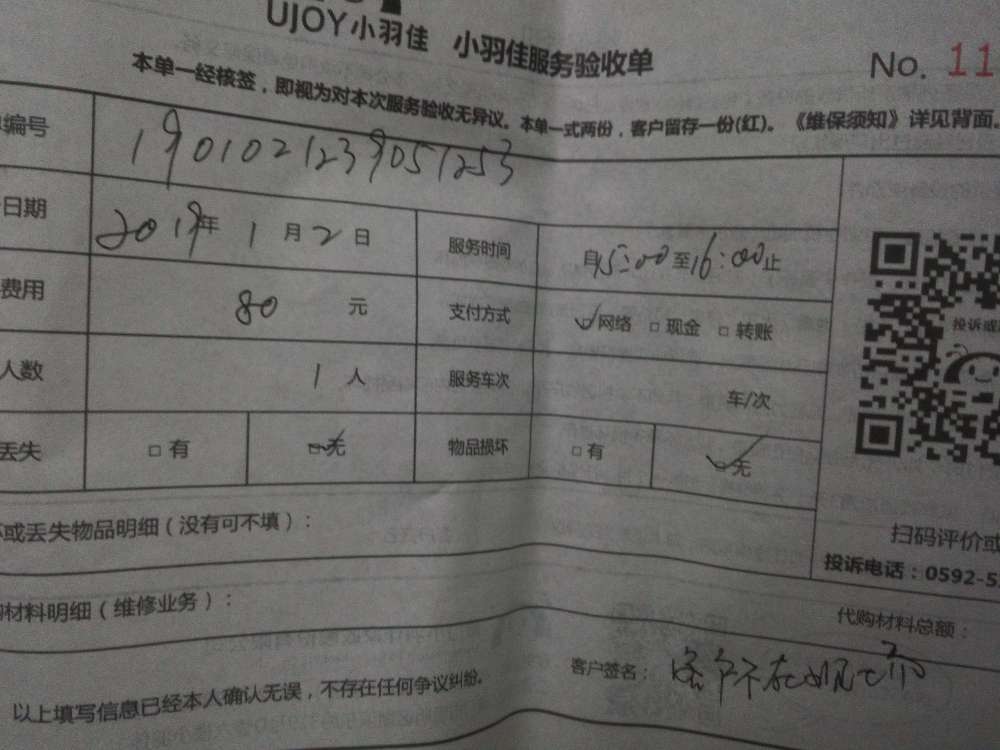 UJOY小羽佳 小羽佳服务验收单
No. 11
本单一经核签，即视为对本次服务验收无异议。本单一式两份，客户留存一份(红)。《维保须知》详见背面。
编号 1901021239051253
日期 2019年 1月2日 服务时间 自15:00至16:00止
费用 80 元 支付方式 网络 现金 转账
人数 1 人 服务车次 车/次
丢失 有 无 物品损坏 有 无
投诉或
或丢失物品明细（没有可不填）：
扫码评价或
投诉电话：0592-5
材料明细（维修业务）：
代购材料总额：
客户签名：客户不在现场
以上填写信息已经本人确认无误，不存在任何争议纠纷。